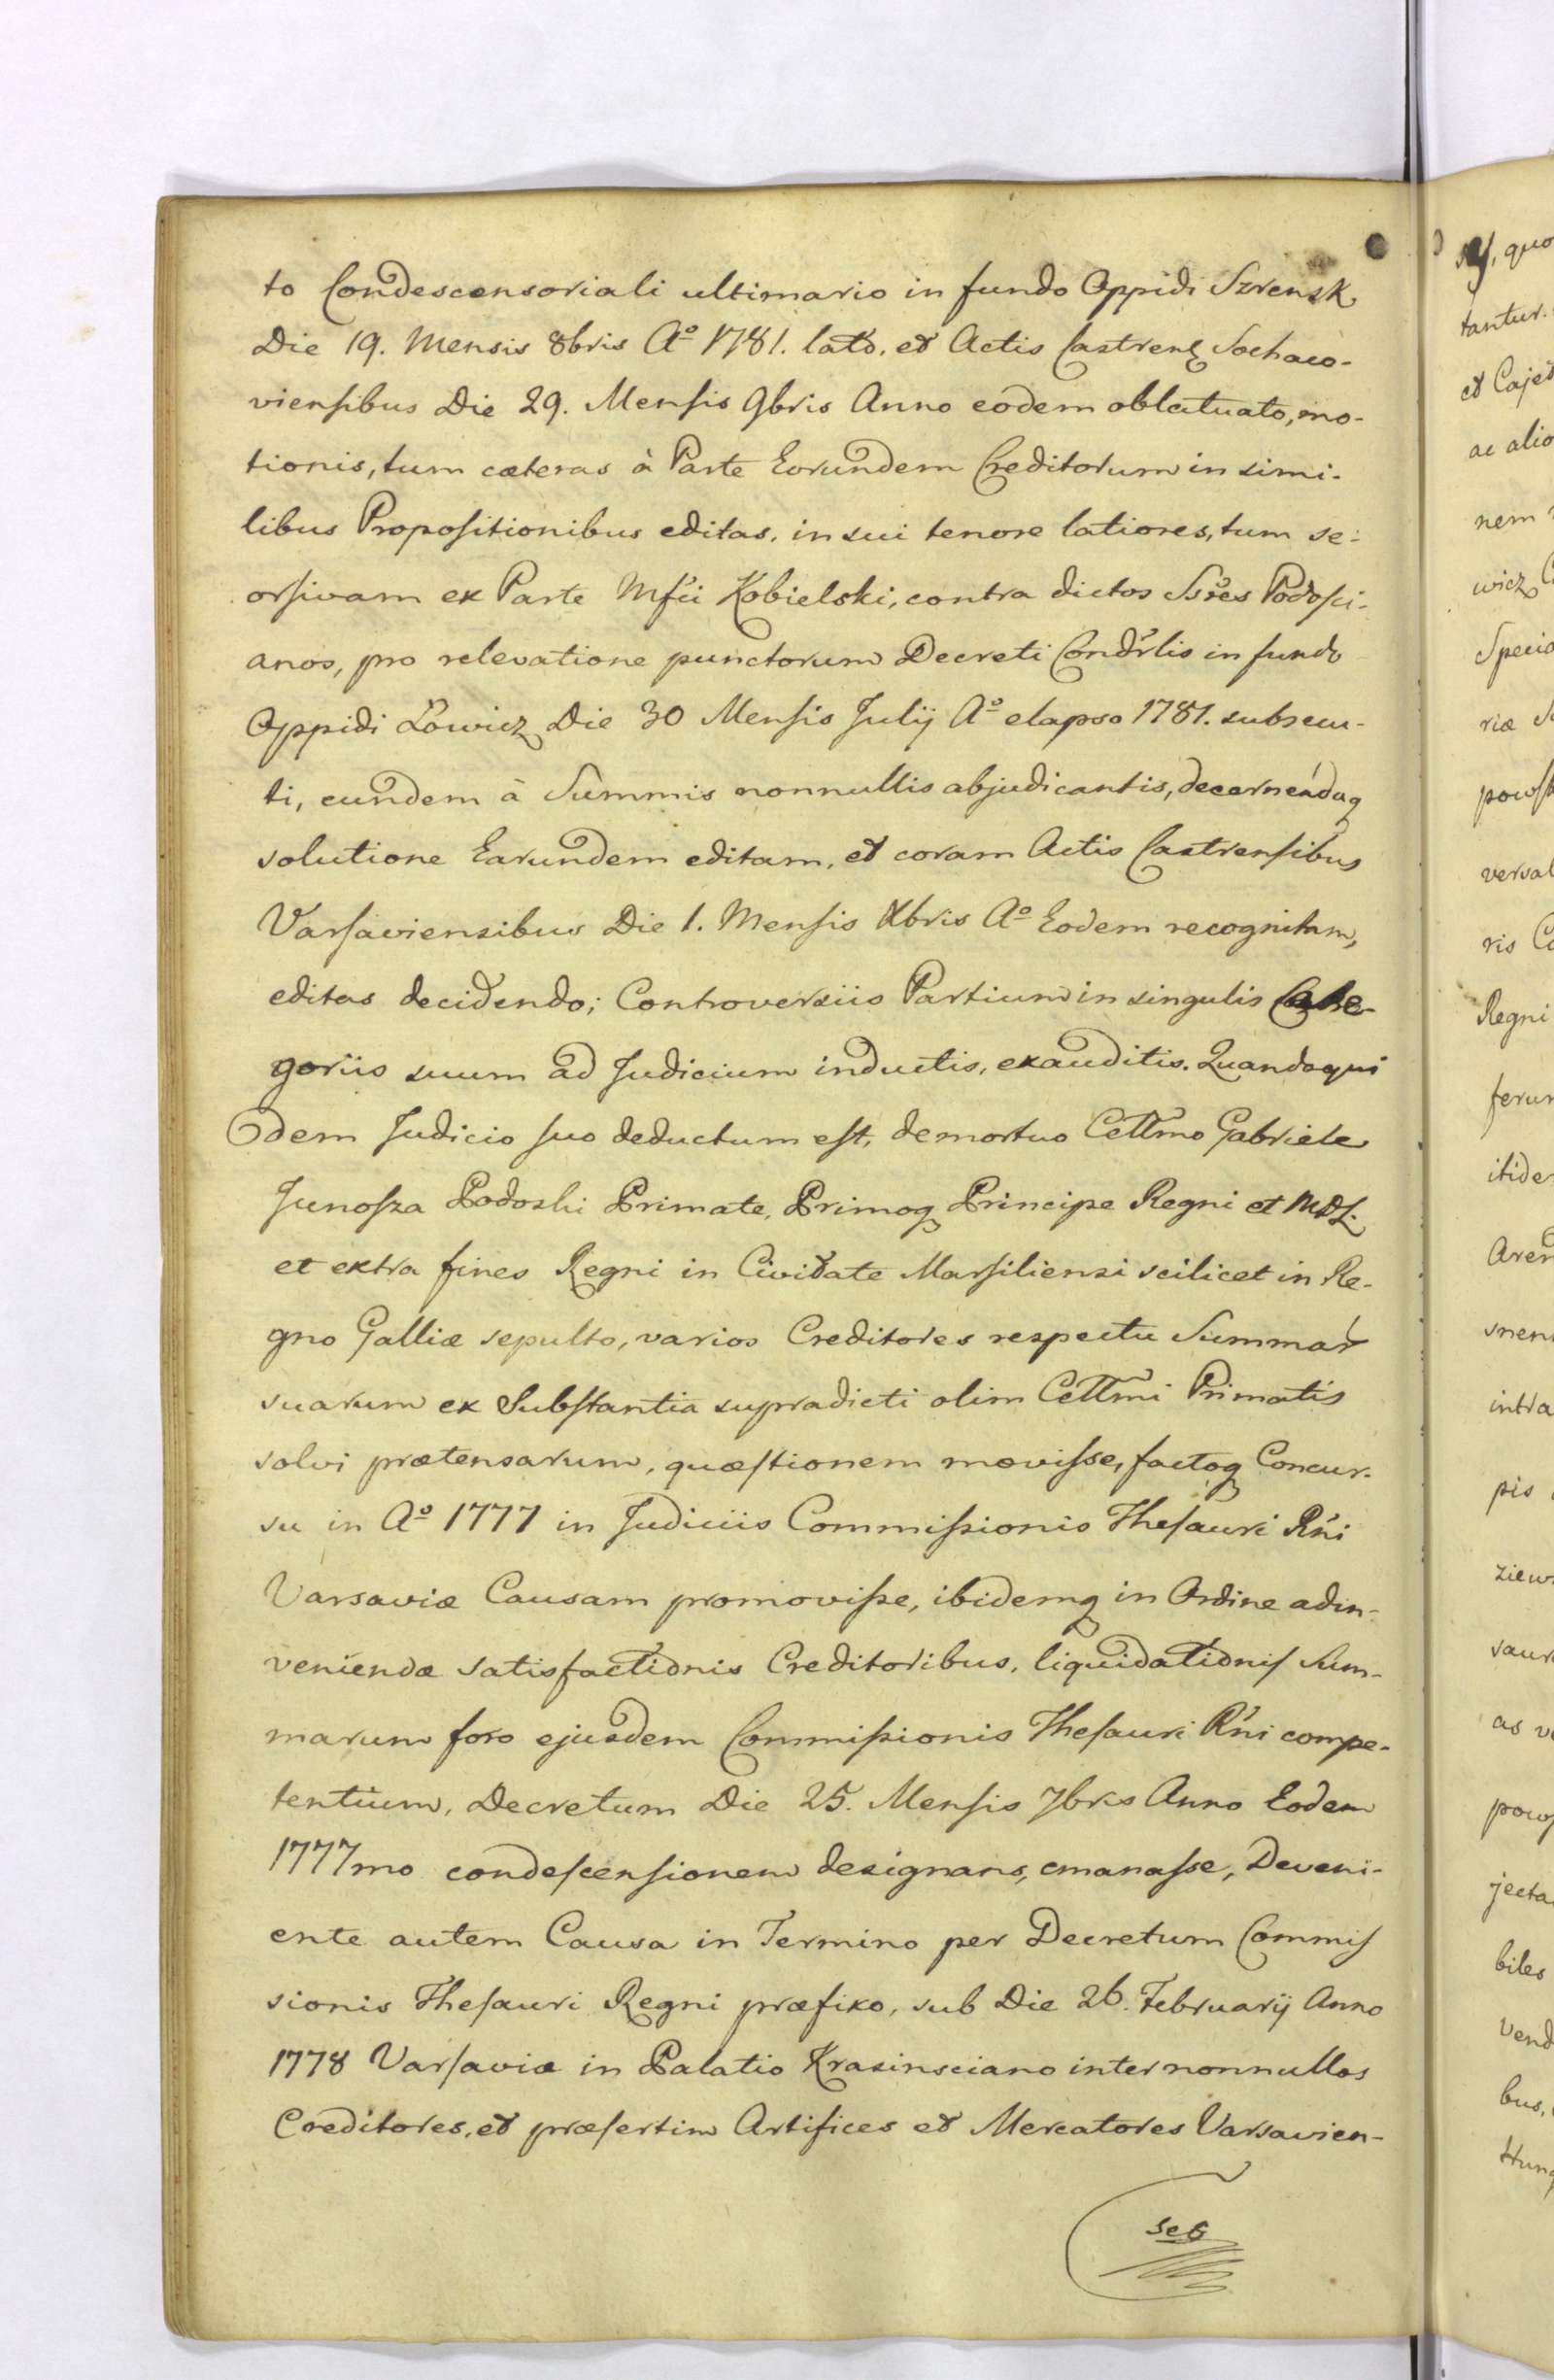 to Condescensoriali ultimario in fundo Oppidi Szrensk
Die 19. Mensis 8bris Aº 1781. lato, et Actis Castrens Sochaco-
viensibus Die 29. Mensis 9bris Anno eodem oblatuato, mo-
tionis, tum cæteras à Parte Eorundem Creditorum in simi-
libus Propositionibus editas, in sui tenore latiores, tum se-
orsivam ex Parte Mfci Kobielski, contra dictos Ssres Podosci-
anos, pro relevatione punctorum Decreti Condrlis in fundo
Oppidi Łowicz Die 30 Mensis Julij Aº elapso 1781. subsecu-
ti, eundem à Summis nonnullis abjudicantis, decernendaq
solutione Earundem editam, et coram Actis Castrensibus
Varsaviensibus Die 1. Mensis Xbris Aº Eodem recognitam,
editas decidendo; Controversiis Partium in singulis Cathe-
goriis suum ad Judicium inductis, exauditis. Quandoqui
dem Judicio suo deductum est, demortuo Cellmo Gabriele
Junosza Podoski Primate, Primoq Principe Regni et MDL.
et extra fines Regni in Civitate Marsiliensi scilicet in Re-
gno Galliæ sepulto, varios Creditores respectu Summar
suarum ex Substantia supradicti olim Cellmi Primatis
solvi prætensarum, quæstionem movisse, factoq Concur-
su in Aº 1777 in Judiciis Commissionis Thesauri Rni
Varsaviæ Causam promovisse, ibidemq in Ordine adin-
veniendæ satisfactionis Creditoribus, liquidationis Sum-
marum foro ejusdem Commissionis Thesauri Rni compe-
tentium, Decretum Die 25. Mensis 7bris Anno Eodem
1777mo condescensionem designans, emanasse, Deveni-
ente autem Causa in Termino per Decretum Commis
sionis Thesauri Regni præfixo, sub Die 26. Februarij Anno
1778 Varsaviæ in Palatio Krasinsciano inter nonnullos
Creditores, et præsertim Artifices et Mercatores Varsavien-
ses
quo
tantur.
et Cajet
ac alio
nem
wicz
Specia
riæ
powst
versal
ris
Regni
ferun
itide
Aren
smen
intra
pis
ziew
saur
as
pow
jecta
biles
vend
bus,
Hung